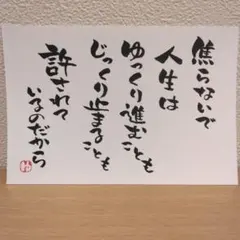 焦らないで
人生は
ゆっくり進むことも
じっくり止まることも
許されて
いるのだから